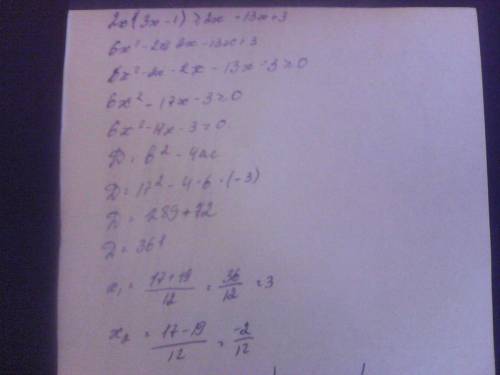 2x(3x-1) ≥ 2x - 13x + 3
6x² - 2x ≥ 2x - 13x + 3
6x² - 2x - 2x - 13x - 3 ≥ 0
6x² - 17x - 3 ≥ 0
6x² - 17x - 3 = 0
D = b² - 4ac
D = 17² - 4·6·(-3)
D = 289 + 72
D = 361
x₁ = (17+19)/12 = 36/12 = 3
x₂ = (17-19)/12 = -2/12